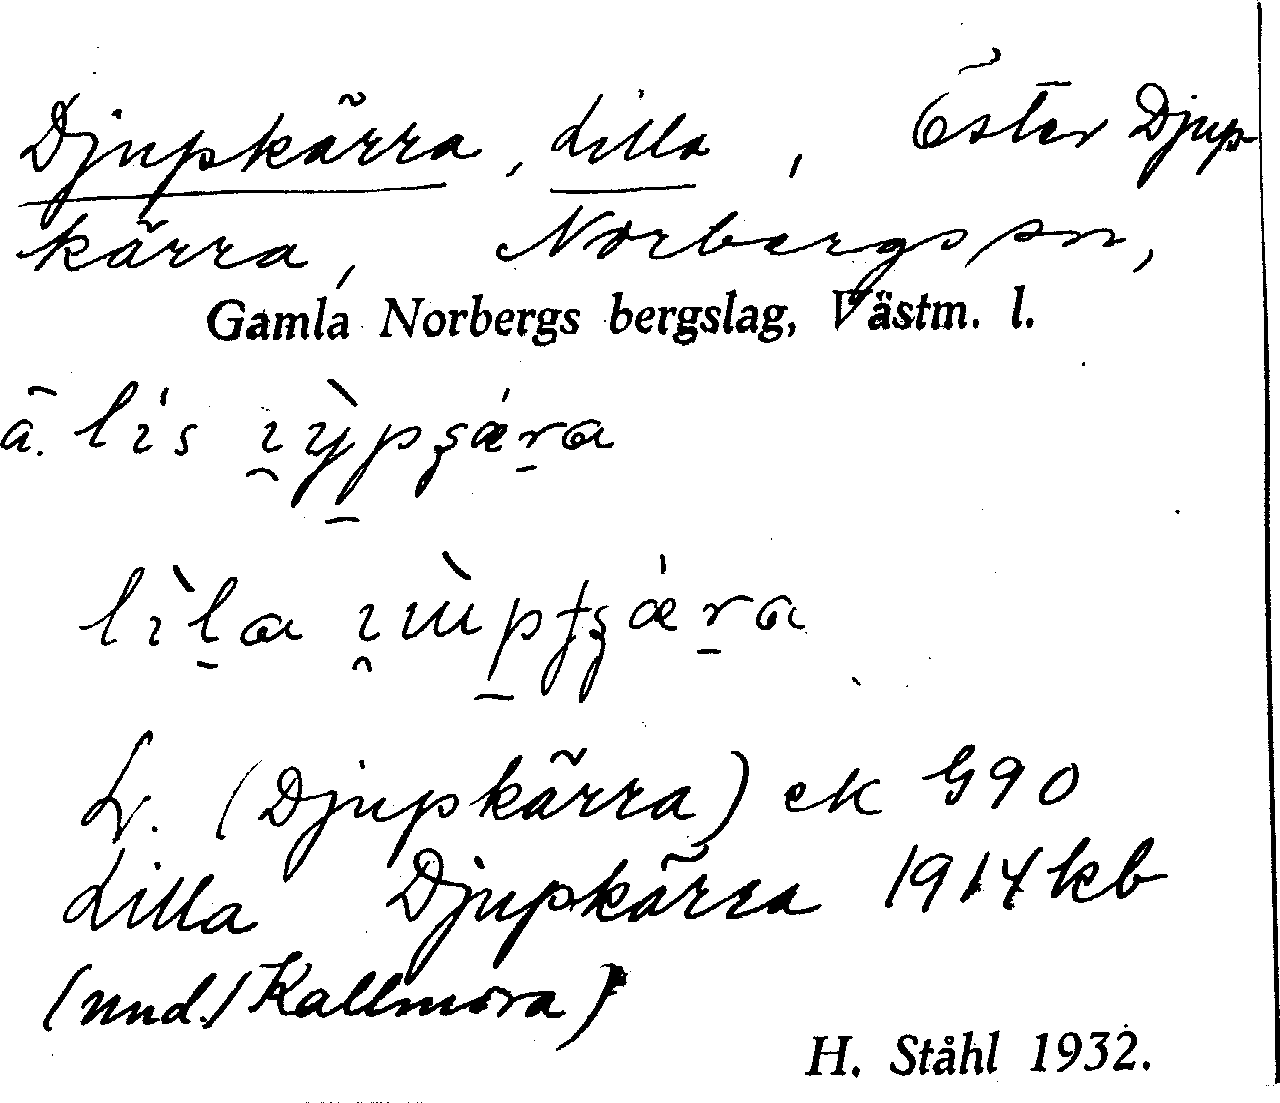 Djupkärra, Lilla, Öster Djup-
kärra, Norbergs sn,
Gamla Norbergs bergslag, Västm. l.
ä. lís
lìla
L. (Djupkärra) ek G90
Lilla Djupkärra 1914 kb
(und./Kallmora)
H. Ståhl 1932.